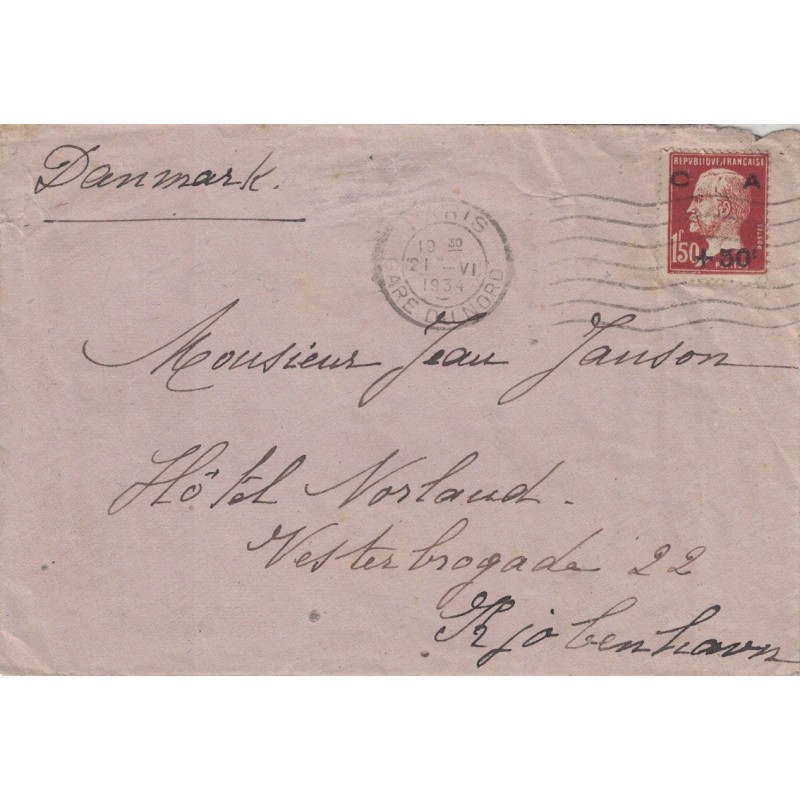 Danmark.
PARIS
19 30
21 - VI
1934
GARE DU NORD
REPVBLIQVE FRANÇAISE
C A
1F50
+50c
POSTES
Monsieur Jean Janson
Hôtel Norland.
Vesterbrogade 22
Kjobenhavn